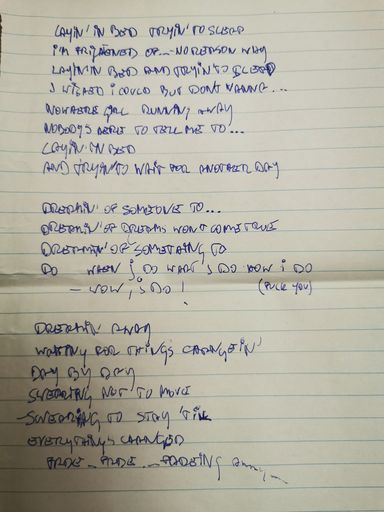 LAYIN' IN BED TRYIN' TO SLEEP
I'M FRIGTENED OF... NO REASON WHY
LAYIN IN BED AND TRYIN TO SLEEP
I WISHED I COULD BUT DONT WANNA...
NOWHERE GIRL RUNNING AWAY
NOBODYS HERE TO TELL ME TO...
LAYIN' IN BED
AND TRYIN TO WAIT FOR ANOTHER DAY
DREAMIN' OF SOMEONE TO...
DREAMIN' OF DREAMS WON'T COME TRUE
DREAMIN' OF SOMETHING TO
DO WHEN I DO WHAT I DO HOW I DO
– WOW, I DO!
(FUCK YOU)
DREAMIN' AWAY
WAITING FOR THINGS CHANGEIN'
DAY BY DAY
SWEARING NOT TO MOVE
– SWEARING TO STAY 'TIL
EVERYTHING'S CHANGED
FADE... FADE... FADEING away...